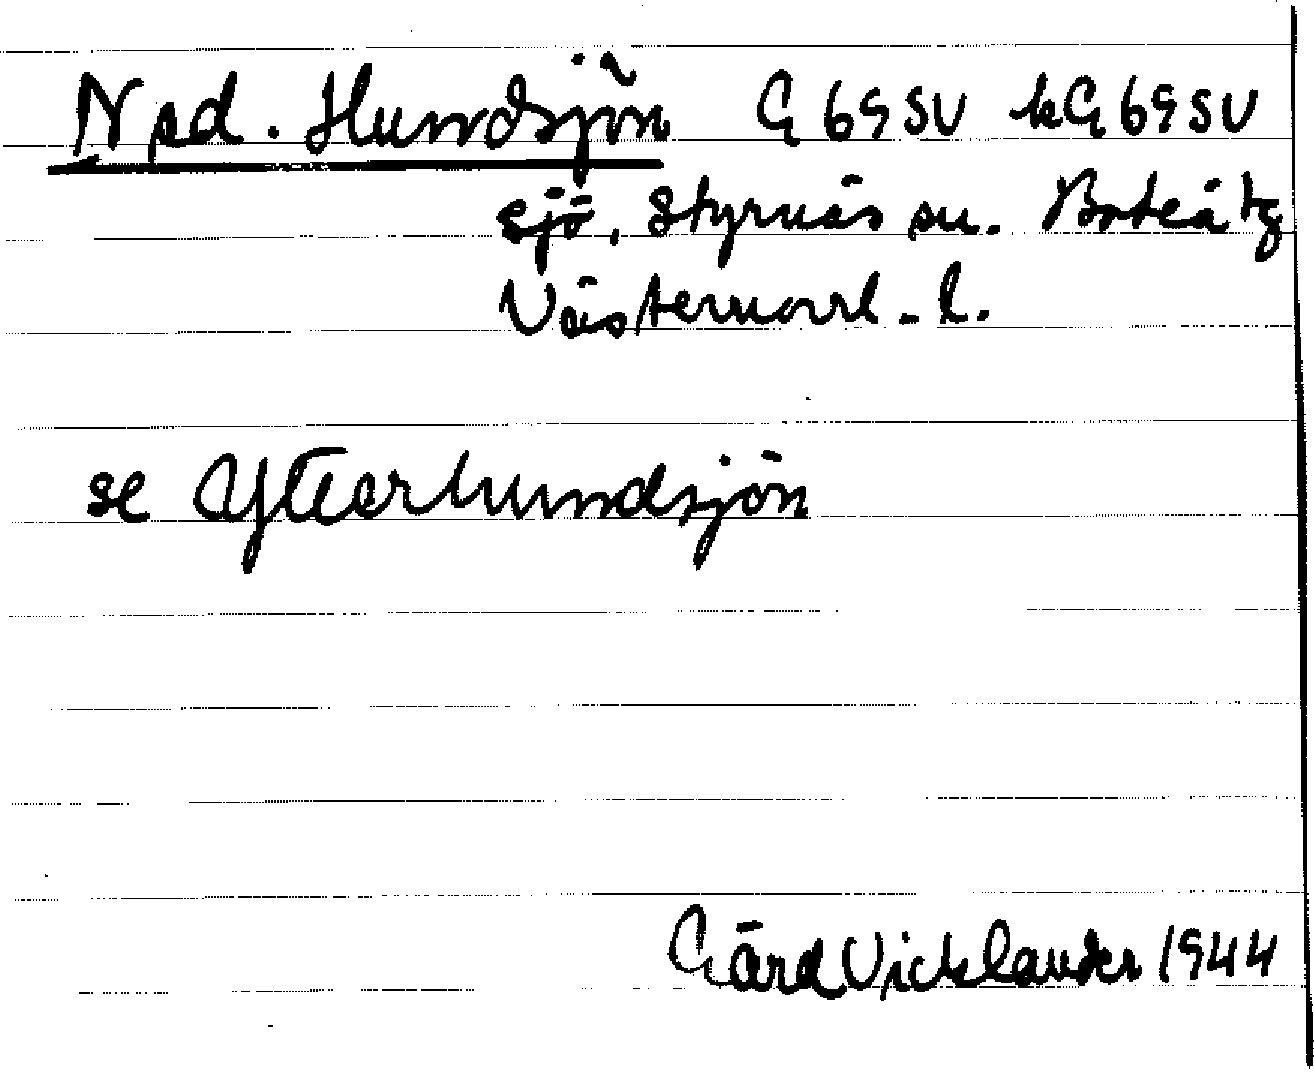 Ned. Hundsjön G 69 SV kG 69 SV
sjö, Styrnäs sn. Boteå tg
Västernorrl. l.
se Ytterhundsjön
Gärd Vicklander 1944